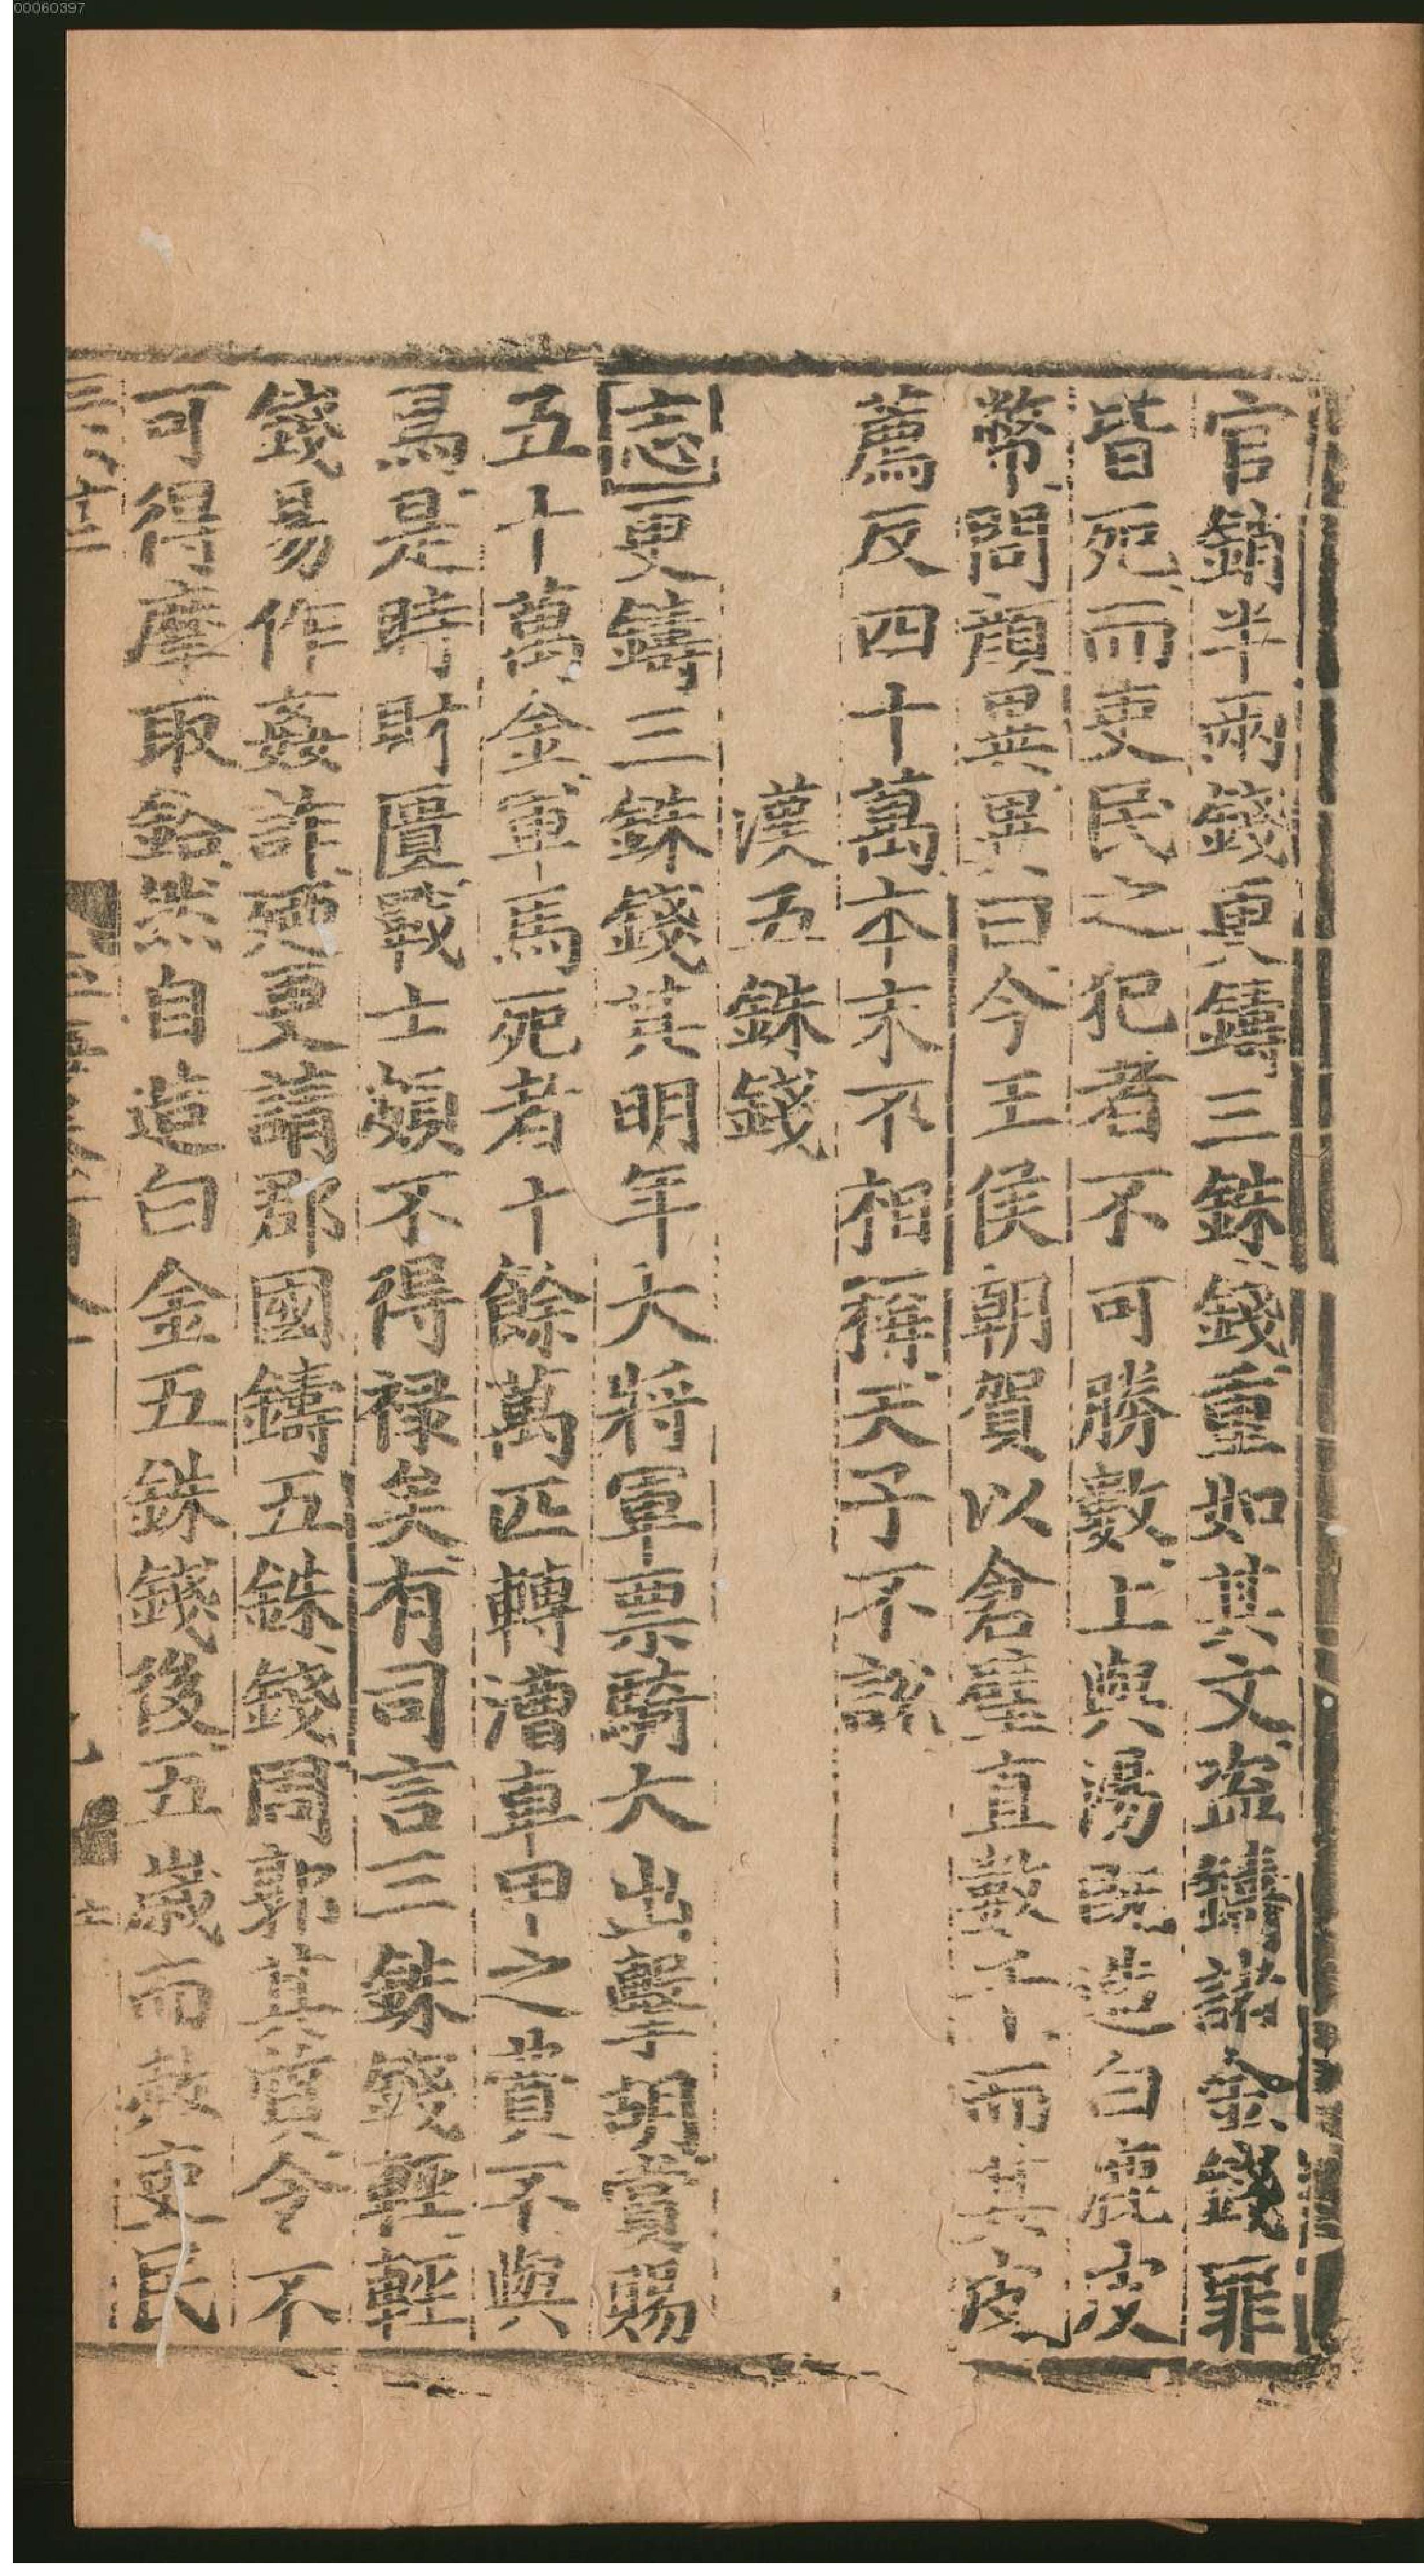 00060397
官銷半兩錢更鑄三銖錢重如其文盗鑄諸金錢罪
皆死而吏民之犯者不可勝數上與湯既造白鹿皮
幣問顔異異曰今王侯朝賀以倉璧直數千而其皮
薦反四十萬本末不相稱天子不說
漢五銖錢
志更鑄三銖錢其明年大將軍票騎大出擊胡賞賜
五十萬金軍馬死者十餘萬匹轉漕車甲之費不與
焉是時財匱戰士頗不得禄矣有司言三銖錢輕輕
錢易作姦詐廼更請郡國鑄五銖錢周郭其質令不
可得摩取鋊然自造白金五銖錢後五歲而赦吏民
三〇十二